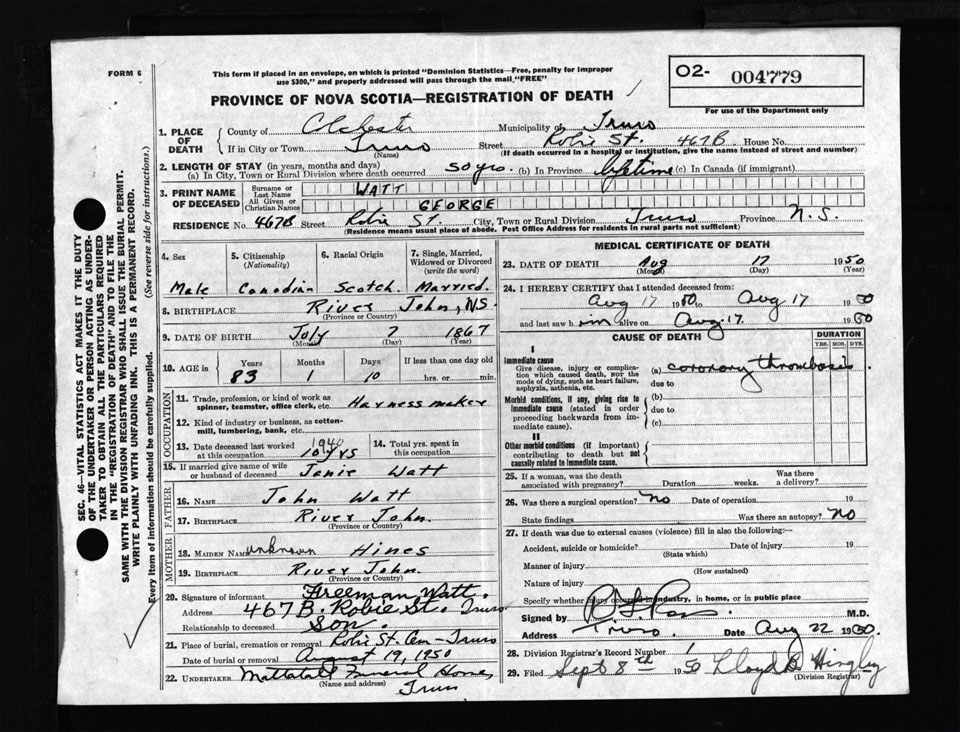 FORM 6
This form if placed in an envelope, on which is printed "Dominion Statistics—Free, penalty for improper
use $300," and properly addressed will pass through the mail, "FREE"
O2- 004779
For use of the Department only
PROVINCE OF NOVA SCOTIA—REGISTRATION OF DEATH
1. PLACE OF DEATH
County of Colchester Municipality of Truro
If in City or Town Truro Street Robie St. 467B House No.
(Name) (If death occurred in a hospital or institution, give the name instead of street and number)
2. LENGTH OF STAY (in years, months and days)
(a) In City, Town or Rural Division where death occurred 50 yrs. (b) In Province lifetime (c) In Canada (if immigrant)
3. PRINT NAME OF DECEASED
Surname or Last Name WATT
All Given or Christian Names GEORGE
RESIDENCE No. 467B Street Robie St. City, Town or Rural Division Truro Province N.S.
(Residence means usual place of abode. Post Office Address for residents in rural parts not sufficient)
4. Sex
Male
5. Citizenship (Nationality)
Canadian
6. Racial Origin
Scotch
7. Single, Married, Widowed or Divorced (write the word)
Married.
8. BIRTHPLACE River John, NS
(Province or Country)
9. DATE OF BIRTH July 7 1867
(Month) (Day) (Year)
10. AGE in
Years Months Days If less than one day old
83 1 10 hrs. or min.
OCCUPATION
11. Trade, profession, or kind of work as
spinner, teamster, office clerk, etc. Harness maker
12. Kind of industry or business, as cotton-
mill, lumbering, bank, etc.
13. Date deceased last worked at this occupation 1940 10 yrs
14. Total yrs. spent in this occupation
15. If married give name of wife or husband of deceased Janie Watt
FATHER
16. NAME John Watt
17. BIRTHPLACE River John.
(Province or Country)
MOTHER
18. MAIDEN NAME unknown Hines
19. BIRTHPLACE River John
(Province or Country)
20. Signature of informant Freeman Watt.
Address 467B. Robie St. Truro
Relationship to deceased Son.
21. Place of burial, cremation or removal Robie St. Cem - Truro
Date of burial or removal August 19, 1950
22. UNDERTAKER Mattatall Funeral Home,
(Name and address) Truro
MEDICAL CERTIFICATE OF DEATH
23. DATE OF DEATH Aug 17 1950
(Month) (Day) (Year)
24. I HEREBY CERTIFY that I attended deceased from
Aug 17 1950 to Aug 17 1950
and last saw him alive on Aug. 17. 1950
CAUSE OF DEATH
DURATION
YRS. MOS. DYS.
I
Immediate cause
Give disease, injury or complica-
tion which caused death, NOT the
mode of dying, such as heart failure,
asphyxia, asthenia, etc.
(a) coronary thrombosis.
due to
Morbid conditions, if any, giving rise to
immediate cause (stated in order
proceeding backwards from im-
mediate cause).
(b)
due to
(c)
II
Other morbid conditions (if important)
contributing to death but not
causally related to immediate cause.
25. If a woman, was the death
associated with pregnancy? Duration weeks. Was there a delivery?
26. Was there a surgical operation? No Date of operation 19
State findings Was there an autopsy? No
27. If death was due to external causes (violence) fill in also the following:—
Accident, suicide or homicide? Date of injury 19
(State which)
Manner of injury
(How sustained)
Nature of injury
Specify whether injury occurred in industry, in home, or in public place
Signed by M.D.
Address Truro. Date Aug 22 1950.
28. Division Registrar's Record Number 1
29. Filed Sept 8th 1950 Lloyd B Hingley
(Division Registrar)
SEC. 46—VITAL STATISTICS ACT MAKES IT THE DUTY
OF THE UNDERTAKER OR PERSON ACTING AS UNDER-
TAKER TO OBTAIN ALL THE PARTICULARS REQUIRED
IN THE "REGISTRATION OF DEATH" AND TO FILE THE
SAME WITH THE DIVISION REGISTRAR WHO SHALL ISSUE THE BURIAL PERMIT.
WRITE PLAINLY WITH UNFADING INK. THIS IS A PERMANENT RECORD.
Every item of information should be carefully supplied. (See reverse side for instructions.)